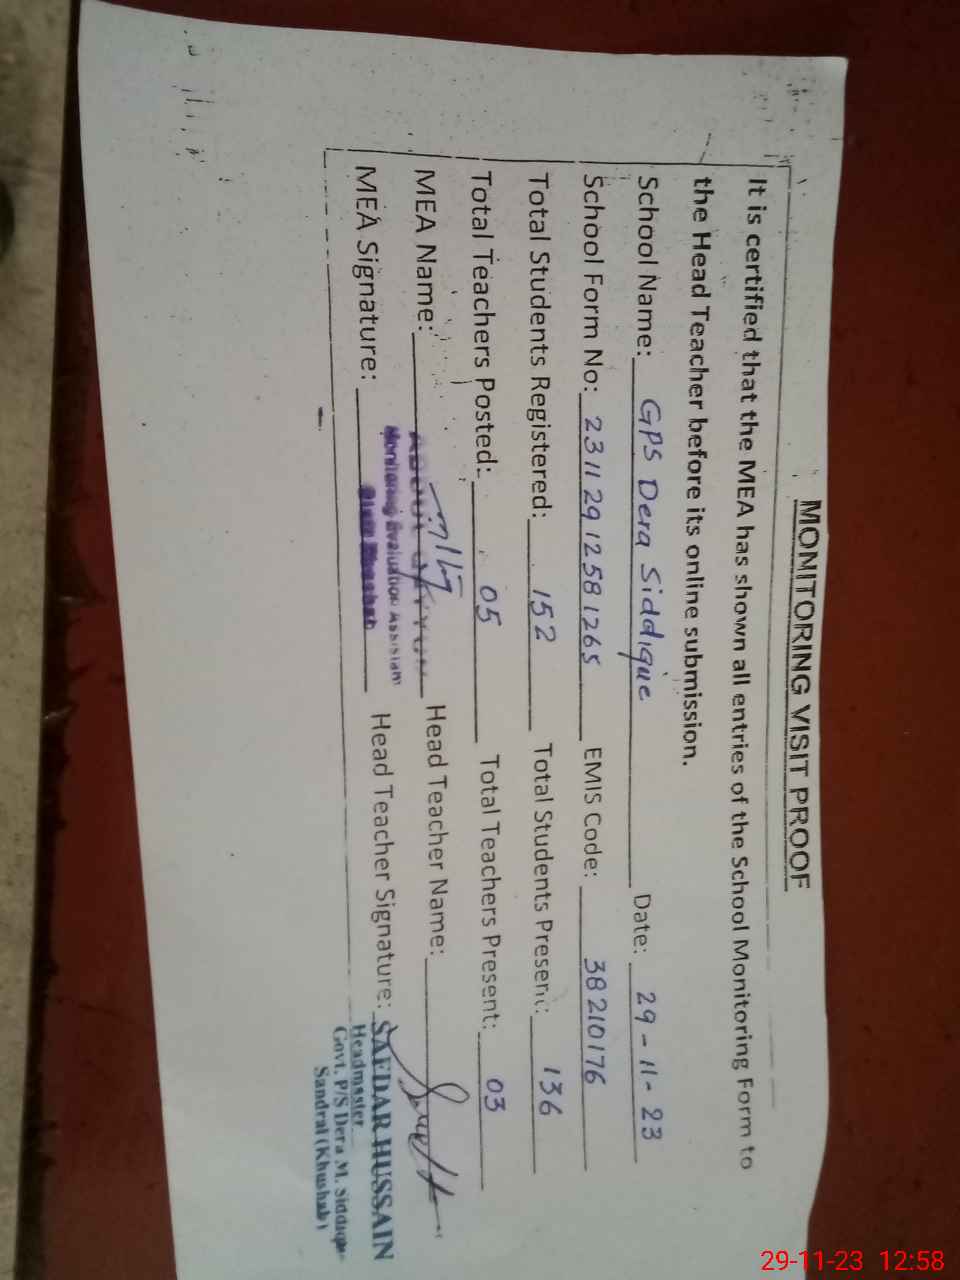 MONITORING VISIT PROOF
It is certified that the MEA has shown all entries of the School Monitoring Form to
the Head Teacher before its online submission.
School Name: GPS Dera Siddique Date: 29-11-23
School Form No: 2311291258 1265 EMIS Code: 38210176
Total Students Registered: 152 Total Students Present: 136
Total Teachers Posted: 05 Total Teachers Present: 03
MEA Name: Head Teacher Name:
Monitoring Evaluation Assistant
MEA Signature: Head Teacher Signature: SAFDAR HUSSAIN
Headmaster
Govt. P/S Dera M. Siddique
Sandral (Khushab)
29-11-23 12:58